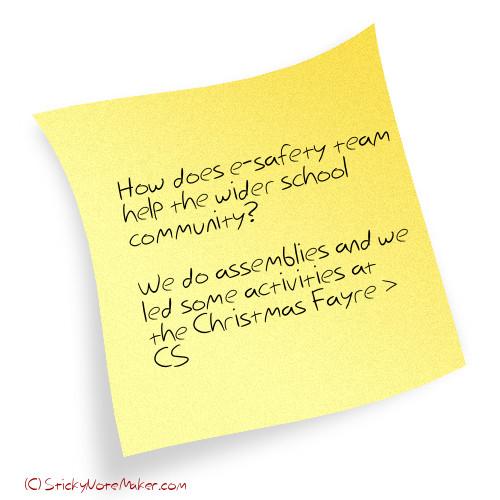 How does e-safety team
help the wider school
community?
We do assemblies and we
led some activities at
the Christmas Fayre >
CS
(C) StickyNoteMaker.com